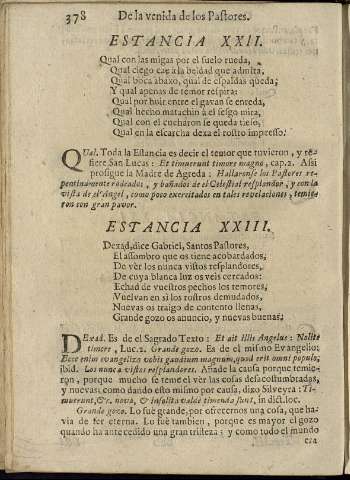 378 De la venida de los Pastores.
ESTANCIA XXII.
Qual con las migas por el suelo rueda,
Qual ciego cae à la beldad que admira,
Qual boca abaxo, qual de espaldas queda;
Y qual apenas de temor respira:
Qual por huir entre el gavan se enreda,
Qual hecho matachin à el sesgo mira,
Qual con el cucharon se queda tieso,
Qual en la escarcha dexa el rostro impresso.
QUal. Toda la Estancia es decir el temor que tuvieron, y re-
fiere San Lucas: Et timuerunt timore magno, cap.2. Assi
prosigue la Madre de Agreda: Hallaronse los Pastores re-
pentinamente rodeados, y bañados de el Celestial resplandor, y con la
vista de el Angel, como poco exercitados en tales revelaciones, temie-
ron con gran pavor.
ESTANCIA XXIII.
Dexad, dice Gabriel, Santos Pastores,
El assombro que os tiene acobardados,
De vèr los nunca vistos resplandores,
De cuya blanca luz os veis cercados:
Echad de vuestros pechos los temores,
Vuelvan en sì los rostros demudados,
Nuevas os traigo de contento llenas,
Grande gozo os anuncio, y nuevas buenas.
DExad. Es de el Sagrado Texto: Et ait illis Angelus: Nolite
timere, Luc.2. Grande gozo. Es de el mismo Evangelio:
Ecce enim evangelizo vobis gaudium magnum, quod erit omni populo,
ibid. Los nunca vistos resplandores. Añade la causa porque temie-
ron, porque mucho se teme el vèr las cosas desacostumbradas,
y nuevas; como dando esto mismo por causa, dixo Silveyra: Ti-
muerunt, &c. nova, & insolita valde timenda sunt, in dict. loc.
Grande gozo. Lo fuè grande, por ofrecernos una cosa, que ha-
via de ser eterna. Lo fuè tambien, porque es mayor el gozo
quando ha antecedido una gran tristeza; y como todo el mundo
era